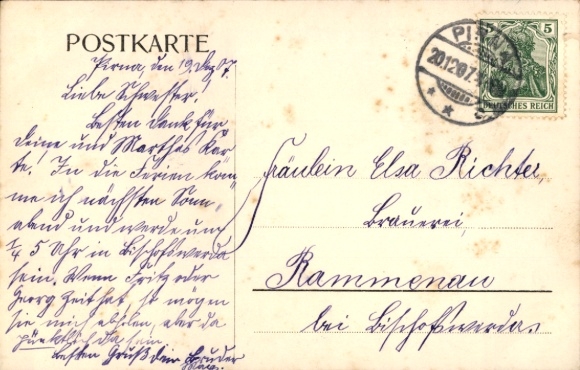 POSTKARTE
Pirna, den 19. Dez. 07.
Liebe Schwester!
Besten Dank für
Deine und Marthas Kar-
te. In die Ferien kom-
me ich nächsten Sonn-
abend und werde um
1/4 5 Uhr in Bischofswerda
sein. Wenn Fritz oder
Georg Zeit hat, so mögen
sie mich abholen, aber da
pünktlich da sein.
Besten Gruß Dein Bruder
PIRNA
20.12.07.
5
DEUTSCHES REICH
Fräulein Elsa Richter,
Brauerei,
Rammenau
bei Bischofswerda.